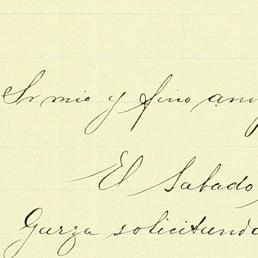 Sr mio y fino ami
El Sabado
Garza solicitando